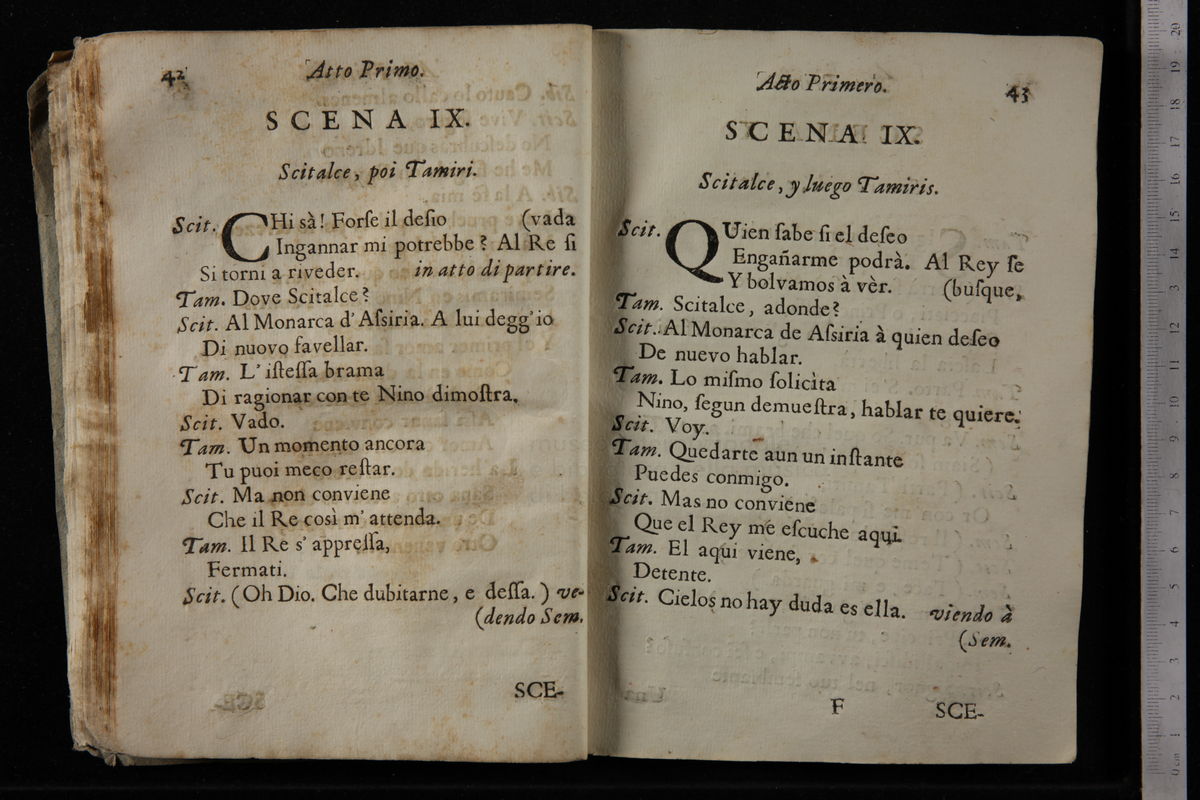 42
Atto Primo.
SCENA IX.
Scitalce, poi Tamiri.
Scit. CHi sà! Forſe il deſio (vada
Ingannar mi potrebbe? Al Re ſi
Si torni a riveder. in atto di partire.
Tam. Dove Scitalce?
Scit. Al Monarca d'Aſsiria. A lui degg'io
Di nuovo favellar.
Tam. L' iſteſſa brama
Di ragionar con te Nino dimoſtra.
Scit. Vado.
Tam. Un momento ancora
Tu puoi meco reſtar.
Scit. Ma non conviene
Che il Re così m' attenda.
Tam. Il Re s' appreſſa,
Fermati.
Scit. (Oh Dio. Che dubitarne, e deſſa.) ve-
(dendo Sem.
SCE-
Acto Primero.
43
SCENA IX.
Scitalce, y luego Tamiris.
Scit. QUien ſabe ſi el deſeo
Engañarme podrà. Al Rey ſe
Y bolvamos à vèr. (buſque,
Tam. Scitalce, adonde?
Scit. Al Monarca de Aſsiria à quien deſeo
De nuevo hablar.
Tam. Lo miſmo ſolicita
Nino, ſegun demueſtra, hablar te quiere.
Scit. Voy.
Tam. Quedarte aun un inſtante
Puedes conmigo.
Scit. Mas no conviene
Que el Rey me eſcuche aqui.
Tam. El aqui viene,
Detente.
Scit. Cielos no hay duda es ella. viendo à
(Sem.
F SCE-